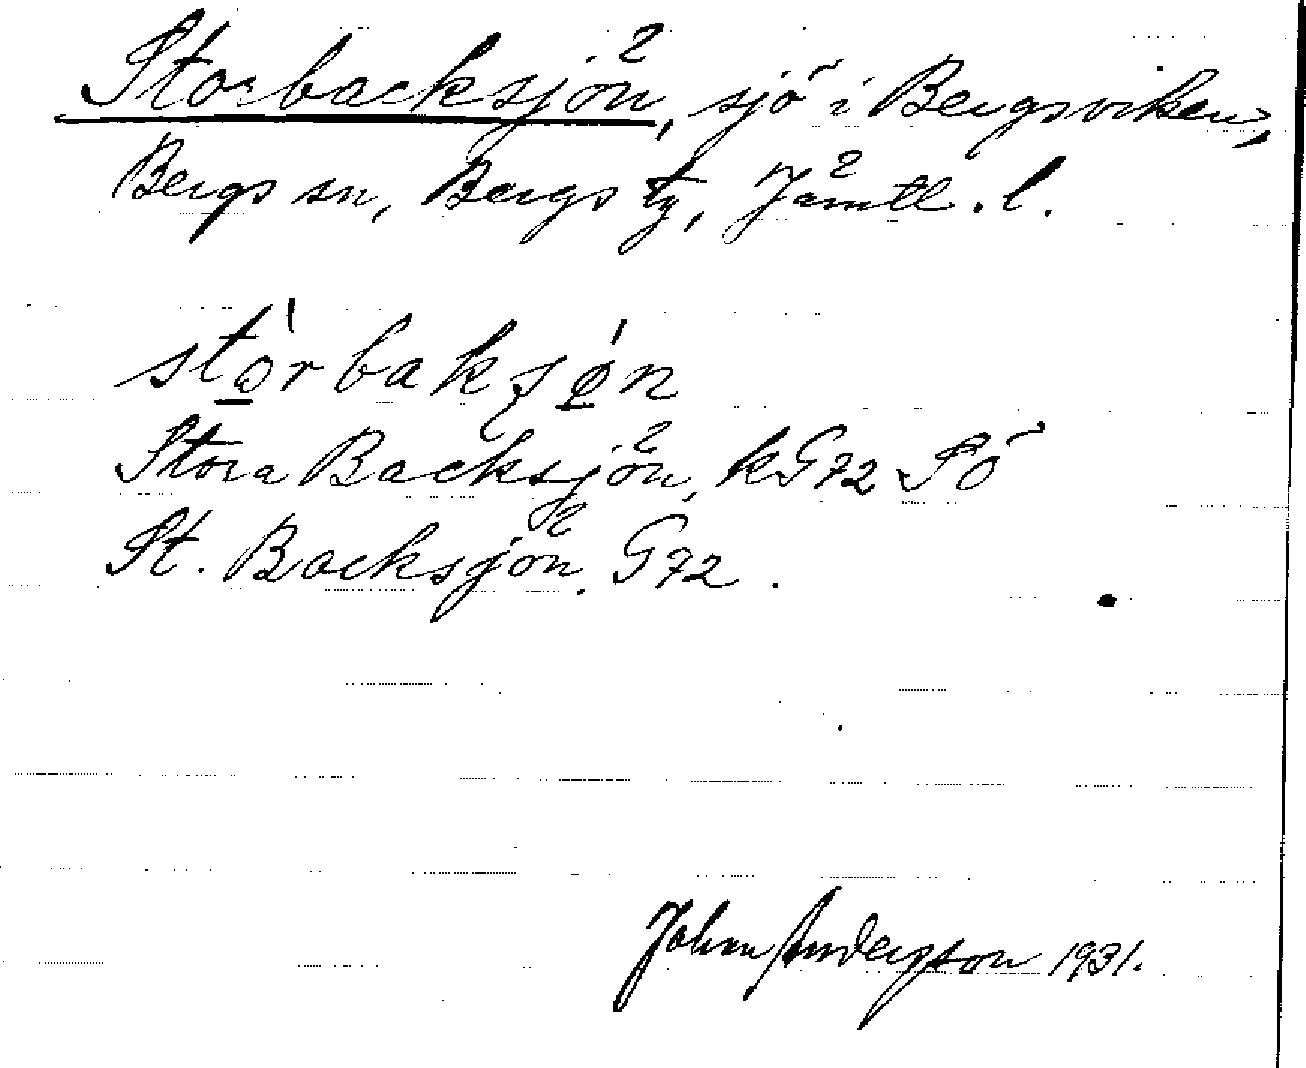 Storbacksjön, sjö i Bergsviken,
Bergs sn, Bergs tg, Jämtl. l.
stǫ̀rbakʂø̀n
Stora Backsjön, kG72 SÖ
St. Backsjön. G72.
John Andersson 1931.